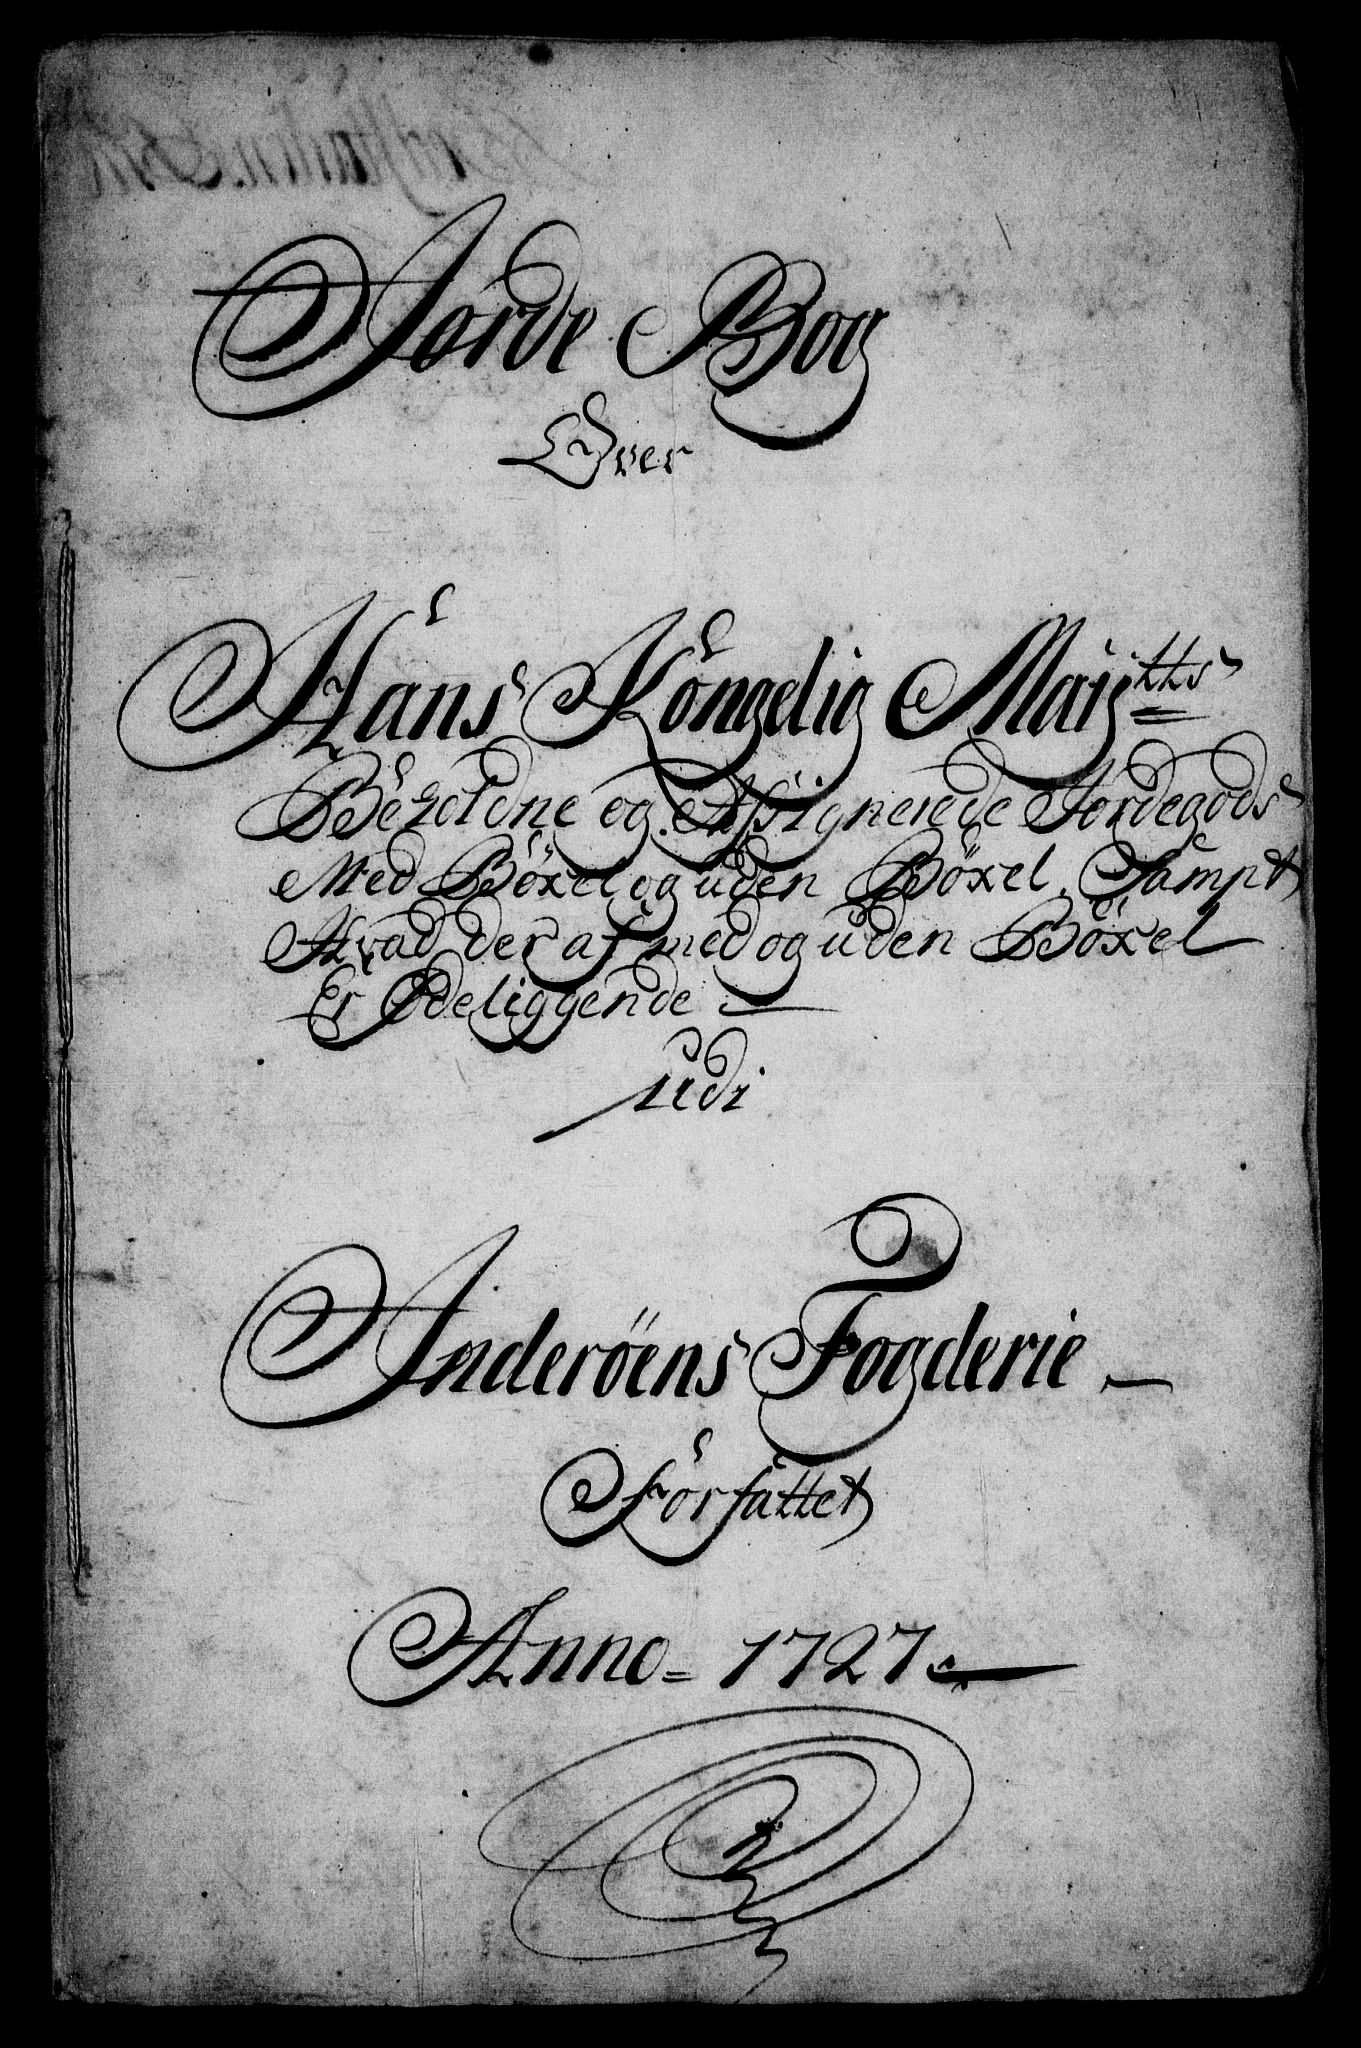 Jorde Bog
Over
Hans Kongelig Mayᵗᵗˢ
Beholdne og Assignerede Jordegods
Med Böxel og uden Böxel, Sampt
Hvad der af med og uden Böxel
Er Ødeliggende
udi
Inderöens Fogderie
Forfattet
Anno = 1727